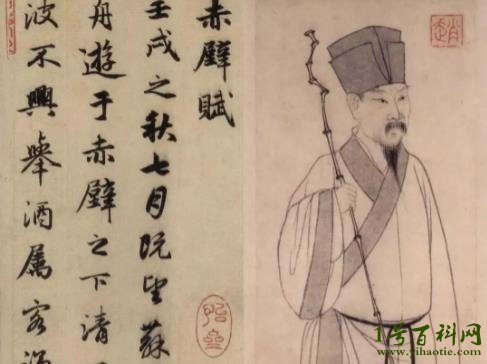 赤壁賦
壬戌之秋七月既望蘇
舟遊于赤壁之下清
波不興舉酒屬客
1号百科网
www.yihaotie.com